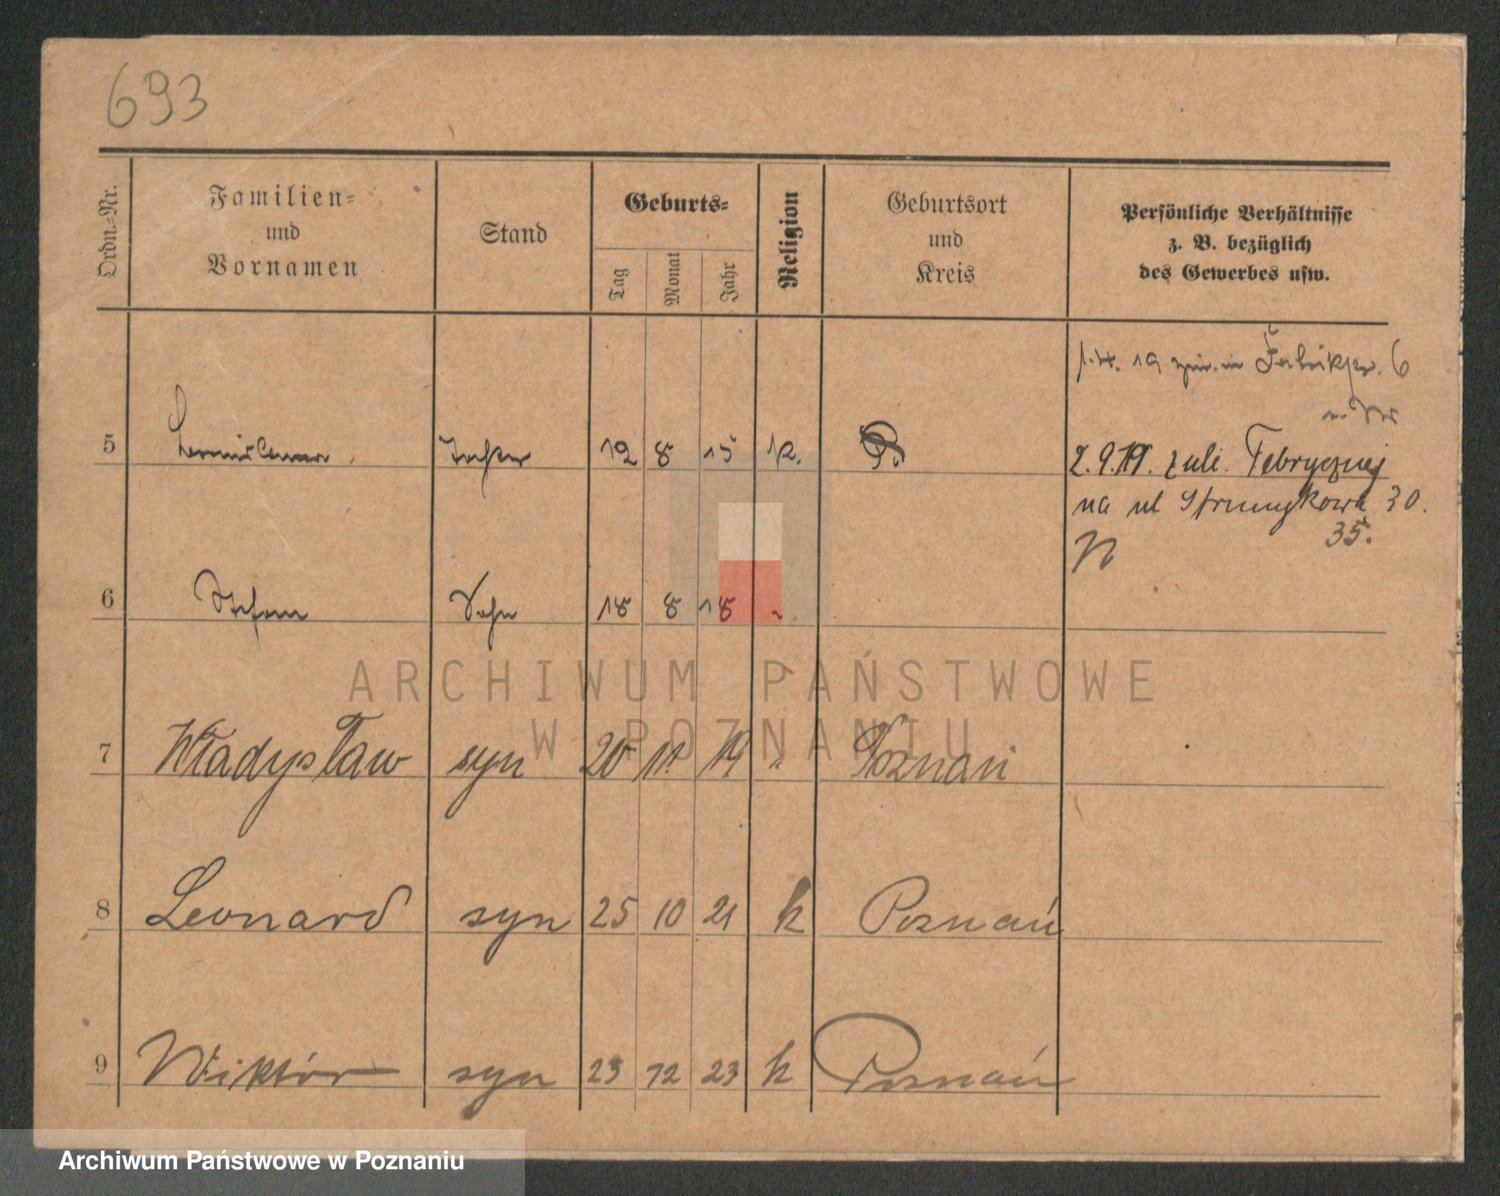 693
Ordn.-Nr.
Familien-
und
Vornamen
Stand
Geburts-
Tag
Monat
Jahr
Religion
Geburtsort
und
Kreis
Persönliche Verhältnisse
z. B. bezüglich
des Gewerbes usw.
19 in Fabrikstr. 6
5 Tochter 12 8 15 k. P.
2.9.19. z uli. Fabrycznej
na ul Strumykowa 30.
35.
N
6 Stefan Sohn 18 8 18 "
ARCHIWUM PAŃSTWOWE
W POZNANIU
7 Władysław syn 20 11 19 " Poznań
8 Leonard syn 25 10 21 k Poznań
9 Wiktór syn 23 12 23 k Poznań
Archiwum Państwowe w Poznaniu